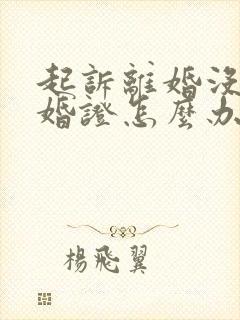 起訴離婚沒
婚證怎麼办
楊飛翼